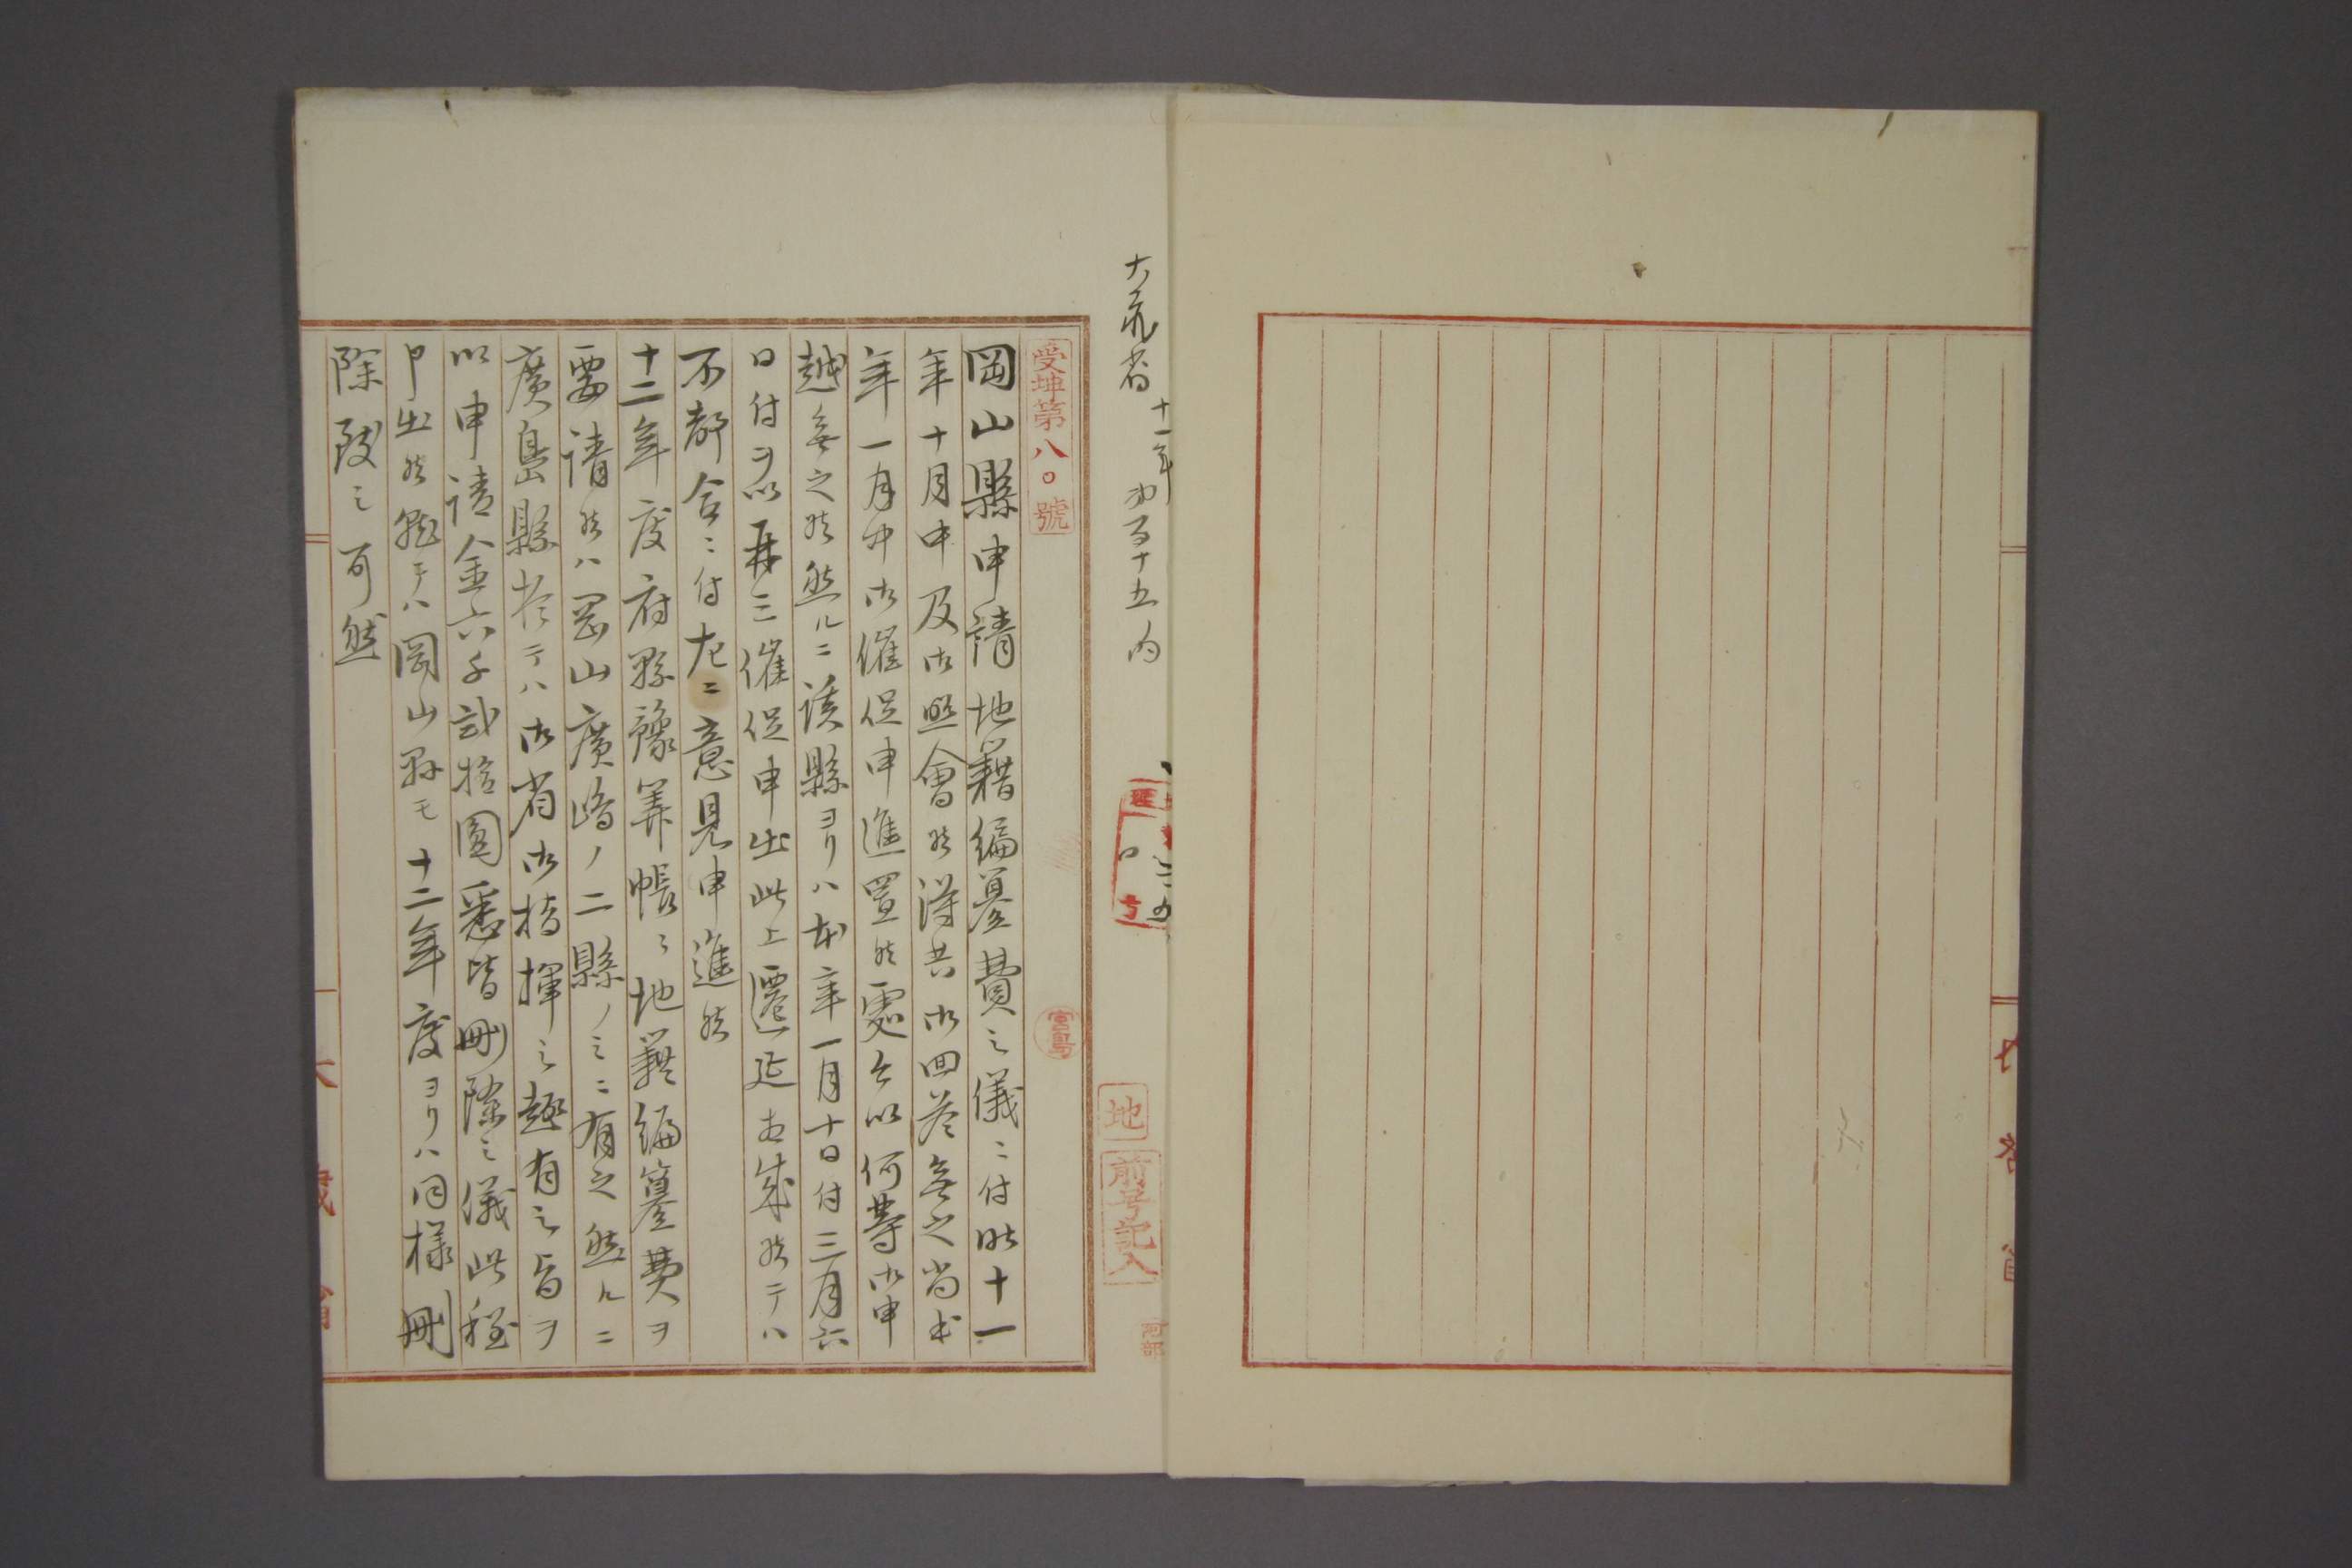 大藏省
十一年
第百十五内
地
前号記入
阿部
受坤第八〇號
宮島
岡山縣申請地籍編纂費之儀ニ付昨十一
年十月中及御照會候得共御回答無之尚本
年一月中御催促申進置候處今以何等御申
越無之候然ルニ該縣ヨリハ本年一月十日付三月六
日付ヲ以再三催促申出此上遷延相成候テハ
不都合ニ付左ニ意見申進候
十二年度府縣豫算帳ニ地籍編纂費ヲ
要請候ハ岡山廣嶋ノ二縣ノミニ有之然ルニ
廣島縣於テハ御省御指揮之趣有之旨ヲ
以申請金六千貳拾圓悉皆刪除之儀此程
申出候就テハ岡山縣モ十二年度ヨリハ同樣刪
除致シ可然
大藏省
内務省